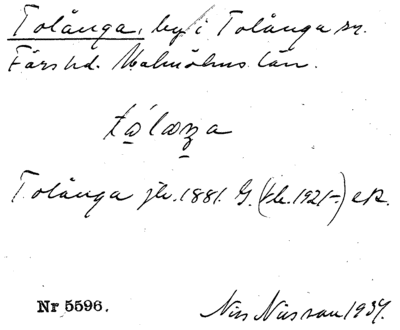 Tolånga, by i Tolånga sn.
Färs hd. Malmöhus län.
Tolånga jk. 1881. G. (kk. 1921-) e R.
Nr 5596.
Nils Nilsson 1934.